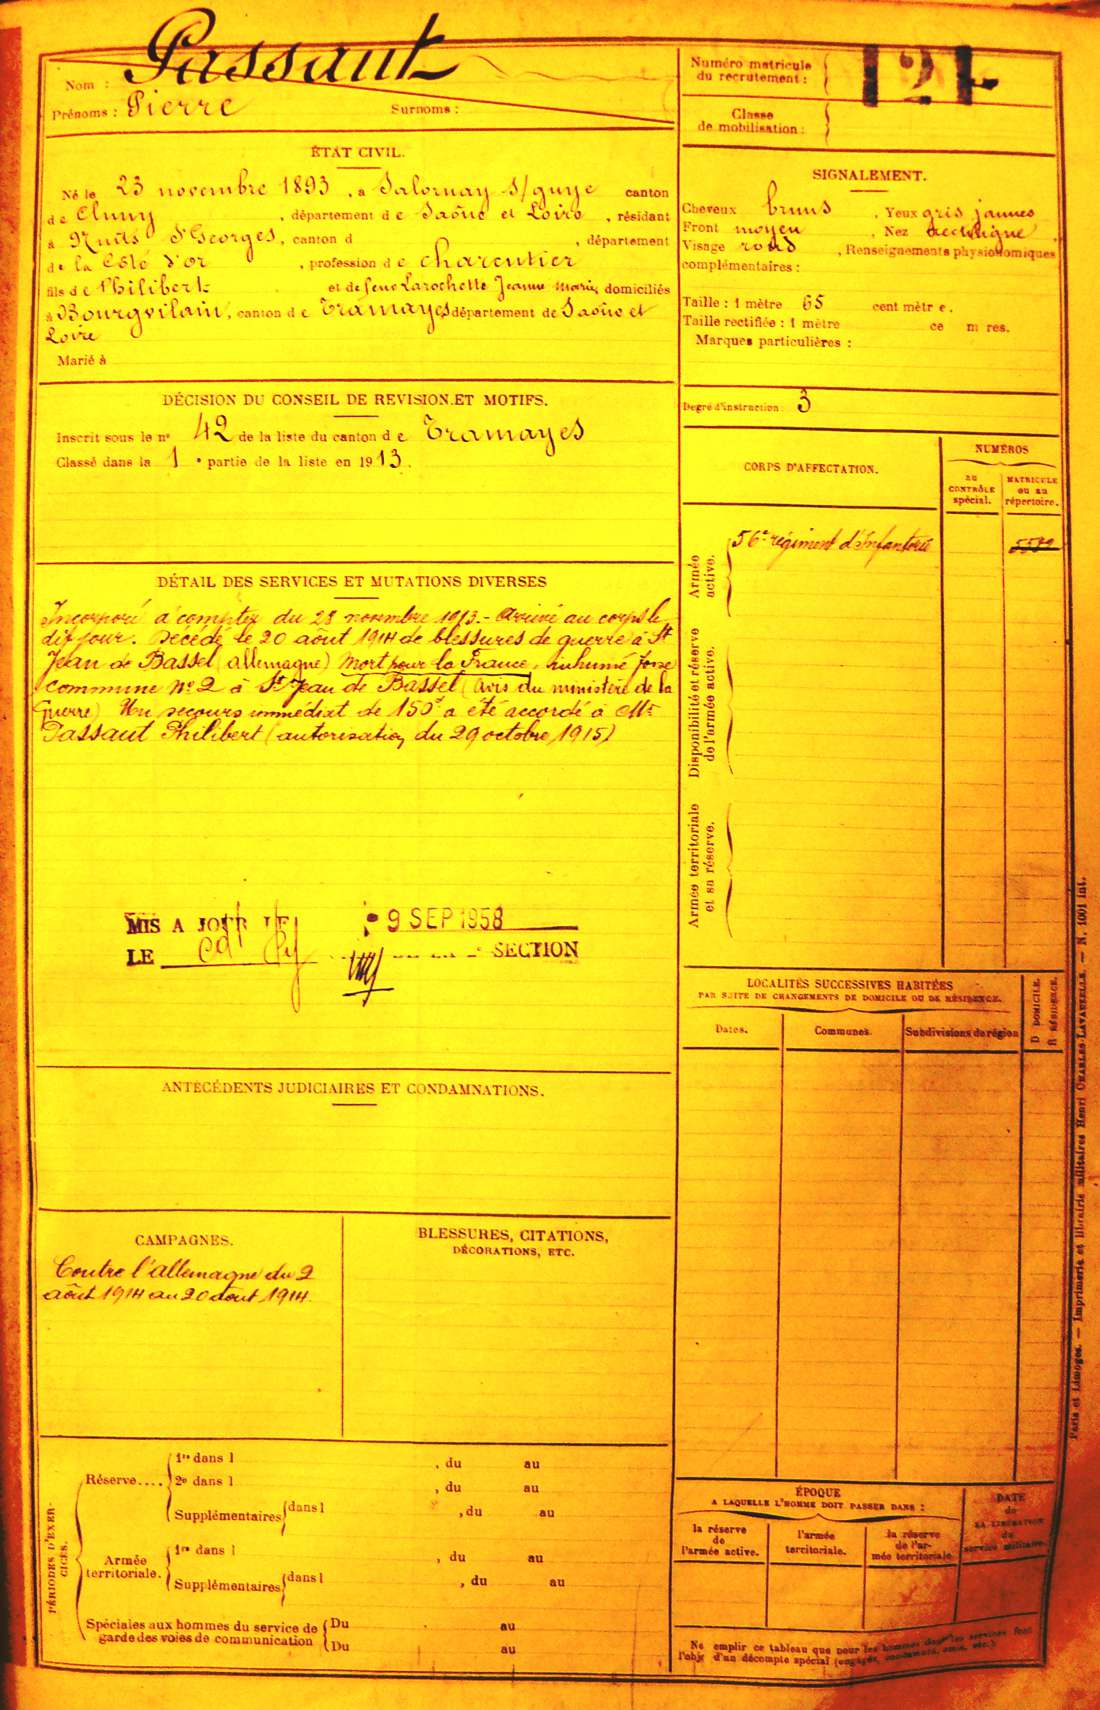 Nom : Passaut
Prénoms : Pierre Surnoms :
Numéro matricule
du recrutement :
Classe
de mobilisation :
ÉTAT CIVIL.
Né le 23 novembre 1893, à Salornay s/guye canton
de Cluny, département de Saône et Loire, résidant
à Nuits St Georges, canton d , département
de la Côte d'or, profession de charcutier
fils de Philibert et de feue Larochette Jeanne Marie, domiciliés
à Bourgvilain, canton de Tramayes département de Saône et
Loire
Marié à
SIGNALEMENT.
Cheveux bruns, Yeux gris jaunes
Front moyen, Nez rectiligne
Visage rond, Renseignements physionomiques
complémentaires :
Taille : 1 mètre 65 cent mètr e.
Taille rectifiée : 1 mètre ce m res.
Marques particulières :
Degré d'instruction : 3
DÉCISION DU CONSEIL DE REVISION ET MOTIFS.
Inscrit sous le n° 42 de la liste du canton de Tramayes
Classé dans la 1 e partie de la liste en 1913.
CORPS D'AFFECTATION.
NUMÉROS
au
CONTRÔLE
spécial.
MATRICULE
ou au
répertoire.
Armée
active.
56e régiment d'Infanterie
Disponibilité et réserve
de l'armée active.
Armée territoriale
et sa réserve.
DÉTAIL DES SERVICES ET MUTATIONS DIVERSES
Incorporé à compter du 28 novembre 1913. - Arrivé au corps le
dit jour. Décédé le 20 août 1914 de blessures de guerre à St
Jean de Bassel (allemagne) Mort pour la France, inhumé fosse
commune n° 2 à St Jean de Bassel (avis du ministère de la
Guerre) Un secours immédiat de 150f a été accordé à Mr
Passaut Philibert (autorisation du 29 octobre 1915)
MIS A JOUR LE - 9 SEP 1958
LE SECTION
LOCALITÉS SUCCESSIVES HABITÉES
PAR SUITE DE CHANGEMENTS DE DOMICILE OU DE RÉSIDENCE.
Dates.
Communes.
Subdivisions de région
D DOMICILE.
R RÉSIDENCE.
ANTÉCÉDENTS JUDICIAIRES ET CONDAMNATIONS.
CAMPAGNES.
Contre l'allemagne du 2
août 1914 au 20 août 1914.
BLESSURES, CITATIONS,
DÉCORATIONS, ETC.
PÉRIODES D'EXER-
CICES.
Réserve....
1re dans l , du au
2e dans l , du au
Supplémentaires dans l , du au
Armée
territoriale.
1re dans l , du au
Supplémentaires dans l , du au
Spéciales aux hommes du service de
garde des voies de communication
Du au
Du au
ÉPOQUE
A LAQUELLE L'HOMME DOIT PASSER DANS :
la réserve
de
l'armée active.
l'armée
territoriale.
la réserve
de l'ar-
mée territoriale.
DATE
de
LA LIBÉRATION
du
service militaire.
Ne emplir ce tableau que pour les hommes dont les services font
l'obje d'un décompte spécial (engagés, condamnés, omis, etc.)
Paris et Limoges. — Imprimerie et librairie militaires Henri CHARLES-LAVAUZELLE. — N. 1001 int.